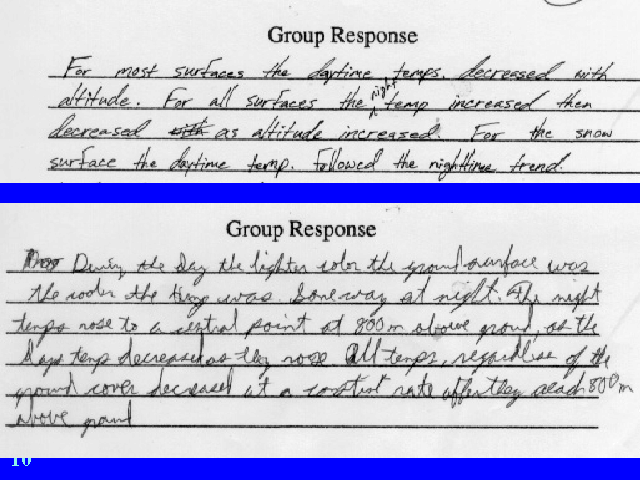 Group Response
For most surfaces the daytime temps. decreased with
altitude. For all surfaces the night temp increased then
decreased as altitude increased. For the snow
surface the daytime temp. followed the nighttime trend.
Group Response
During the day the lighter color the ground surface was
the cooler the temp was. Same way at night. The night
temps rose to a central point at 800m above ground, as the
days temp decreased as they rose All temps, regardless of the
ground cover decreased at a constant rate after they reach 800m
above ground
10